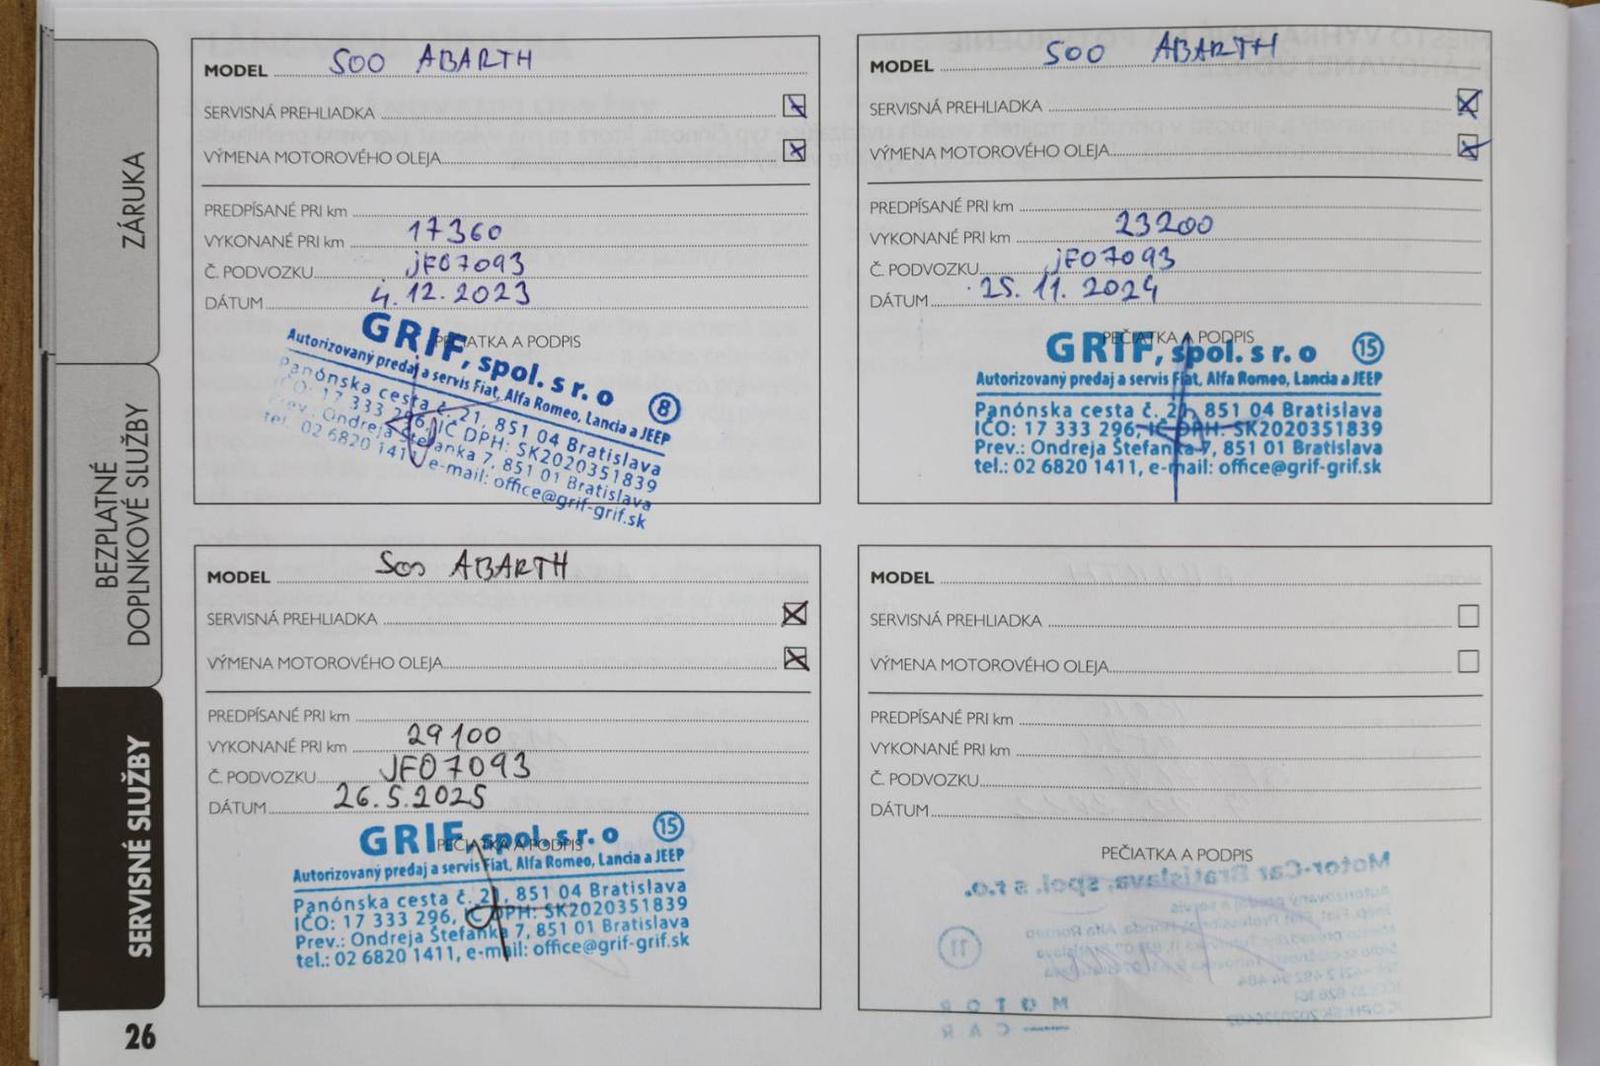 ZÁRUKA
BEZPLATNÉ
DOPLNKOVÉ SLUŽBY
SERVISNÉ SLUŽBY
26
MODEL 500 ABARTH
SERVISNÁ PREHLIADKA
VÝMENA MOTOROVÉHO OLEJA
PREDPÍSANÉ PRI km
VYKONANÉ PRI km 17360
Č. PODVOZKU jF07093
DÁTUM 4.12.2023
PEČIATKA A PODPIS
GRIF, spol. s r. o 8
Autorizovaný predaj a servis Fiat, Alfa Romeo, Lancia a JEEP
Panónska cesta č. 21, 851 04 Bratislava
IČO: 17 333 296, IČ DPH: SK2020351839
Prev.: Ondreja Štefanka 7, 851 01 Bratislava
tel. 02 6820 1411, e-mail: office@grif-grif.sk
MODEL 500 ABARTH
SERVISNÁ PREHLIADKA
VÝMENA MOTOROVÉHO OLEJA
PREDPÍSANÉ PRI km
VYKONANÉ PRI km 23200
Č. PODVOZKU jF07093
DÁTUM 25.11.2024
PEČIATKA A PODPIS
GRIF, spol. s r. o 15
Autorizovaný predaj a servis Fiat, Alfa Romeo, Lancia a JEEP
Panónska cesta č. 21, 851 04 Bratislava
IČO: 17 333 296, IČ DPH: SK2020351839
Prev.: Ondreja Štefanka 7, 851 01 Bratislava
tel.: 02 6820 1411, e-mail: office@grif-grif.sk
MODEL 500 ABARTH
SERVISNÁ PREHLIADKA
VÝMENA MOTOROVÉHO OLEJA
PREDPÍSANÉ PRI km
VYKONANÉ PRI km 29100
Č. PODVOZKU JF07093
DÁTUM 26.5.2025
PEČIATKA A PODPIS
GRIF, spol. s r. o 15
Autorizovaný predaj a servis Fiat, Alfa Romeo, Lancia a JEEP
Panónska cesta č. 21, 851 04 Bratislava
IČO: 17 333 296, IČ DPH: SK2020351839
Prev.: Ondreja Štefanka 7, 851 01 Bratislava
tel.: 02 6820 1411, e-mail: office@grif-grif.sk
MODEL
SERVISNÁ PREHLIADKA
VÝMENA MOTOROVÉHO OLEJA
PREDPÍSANÉ PRI km
VYKONANÉ PRI km
Č. PODVOZKU
DÁTUM
PEČIATKA A PODPIS
Motor-Car Bratislava, spol. s r.o.
11
MOTOR
CAR